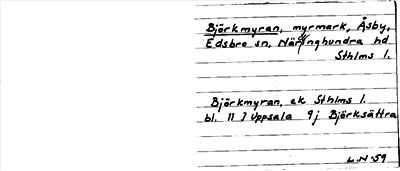 Björkmyran, myrmark, Åsby,
Edsbro sn, Närdinghundra hd
Sthlms l.
Björkmyran, ek Sthlms l.
bl. 11 7 Uppsala 9j Björksättra
L.N-59